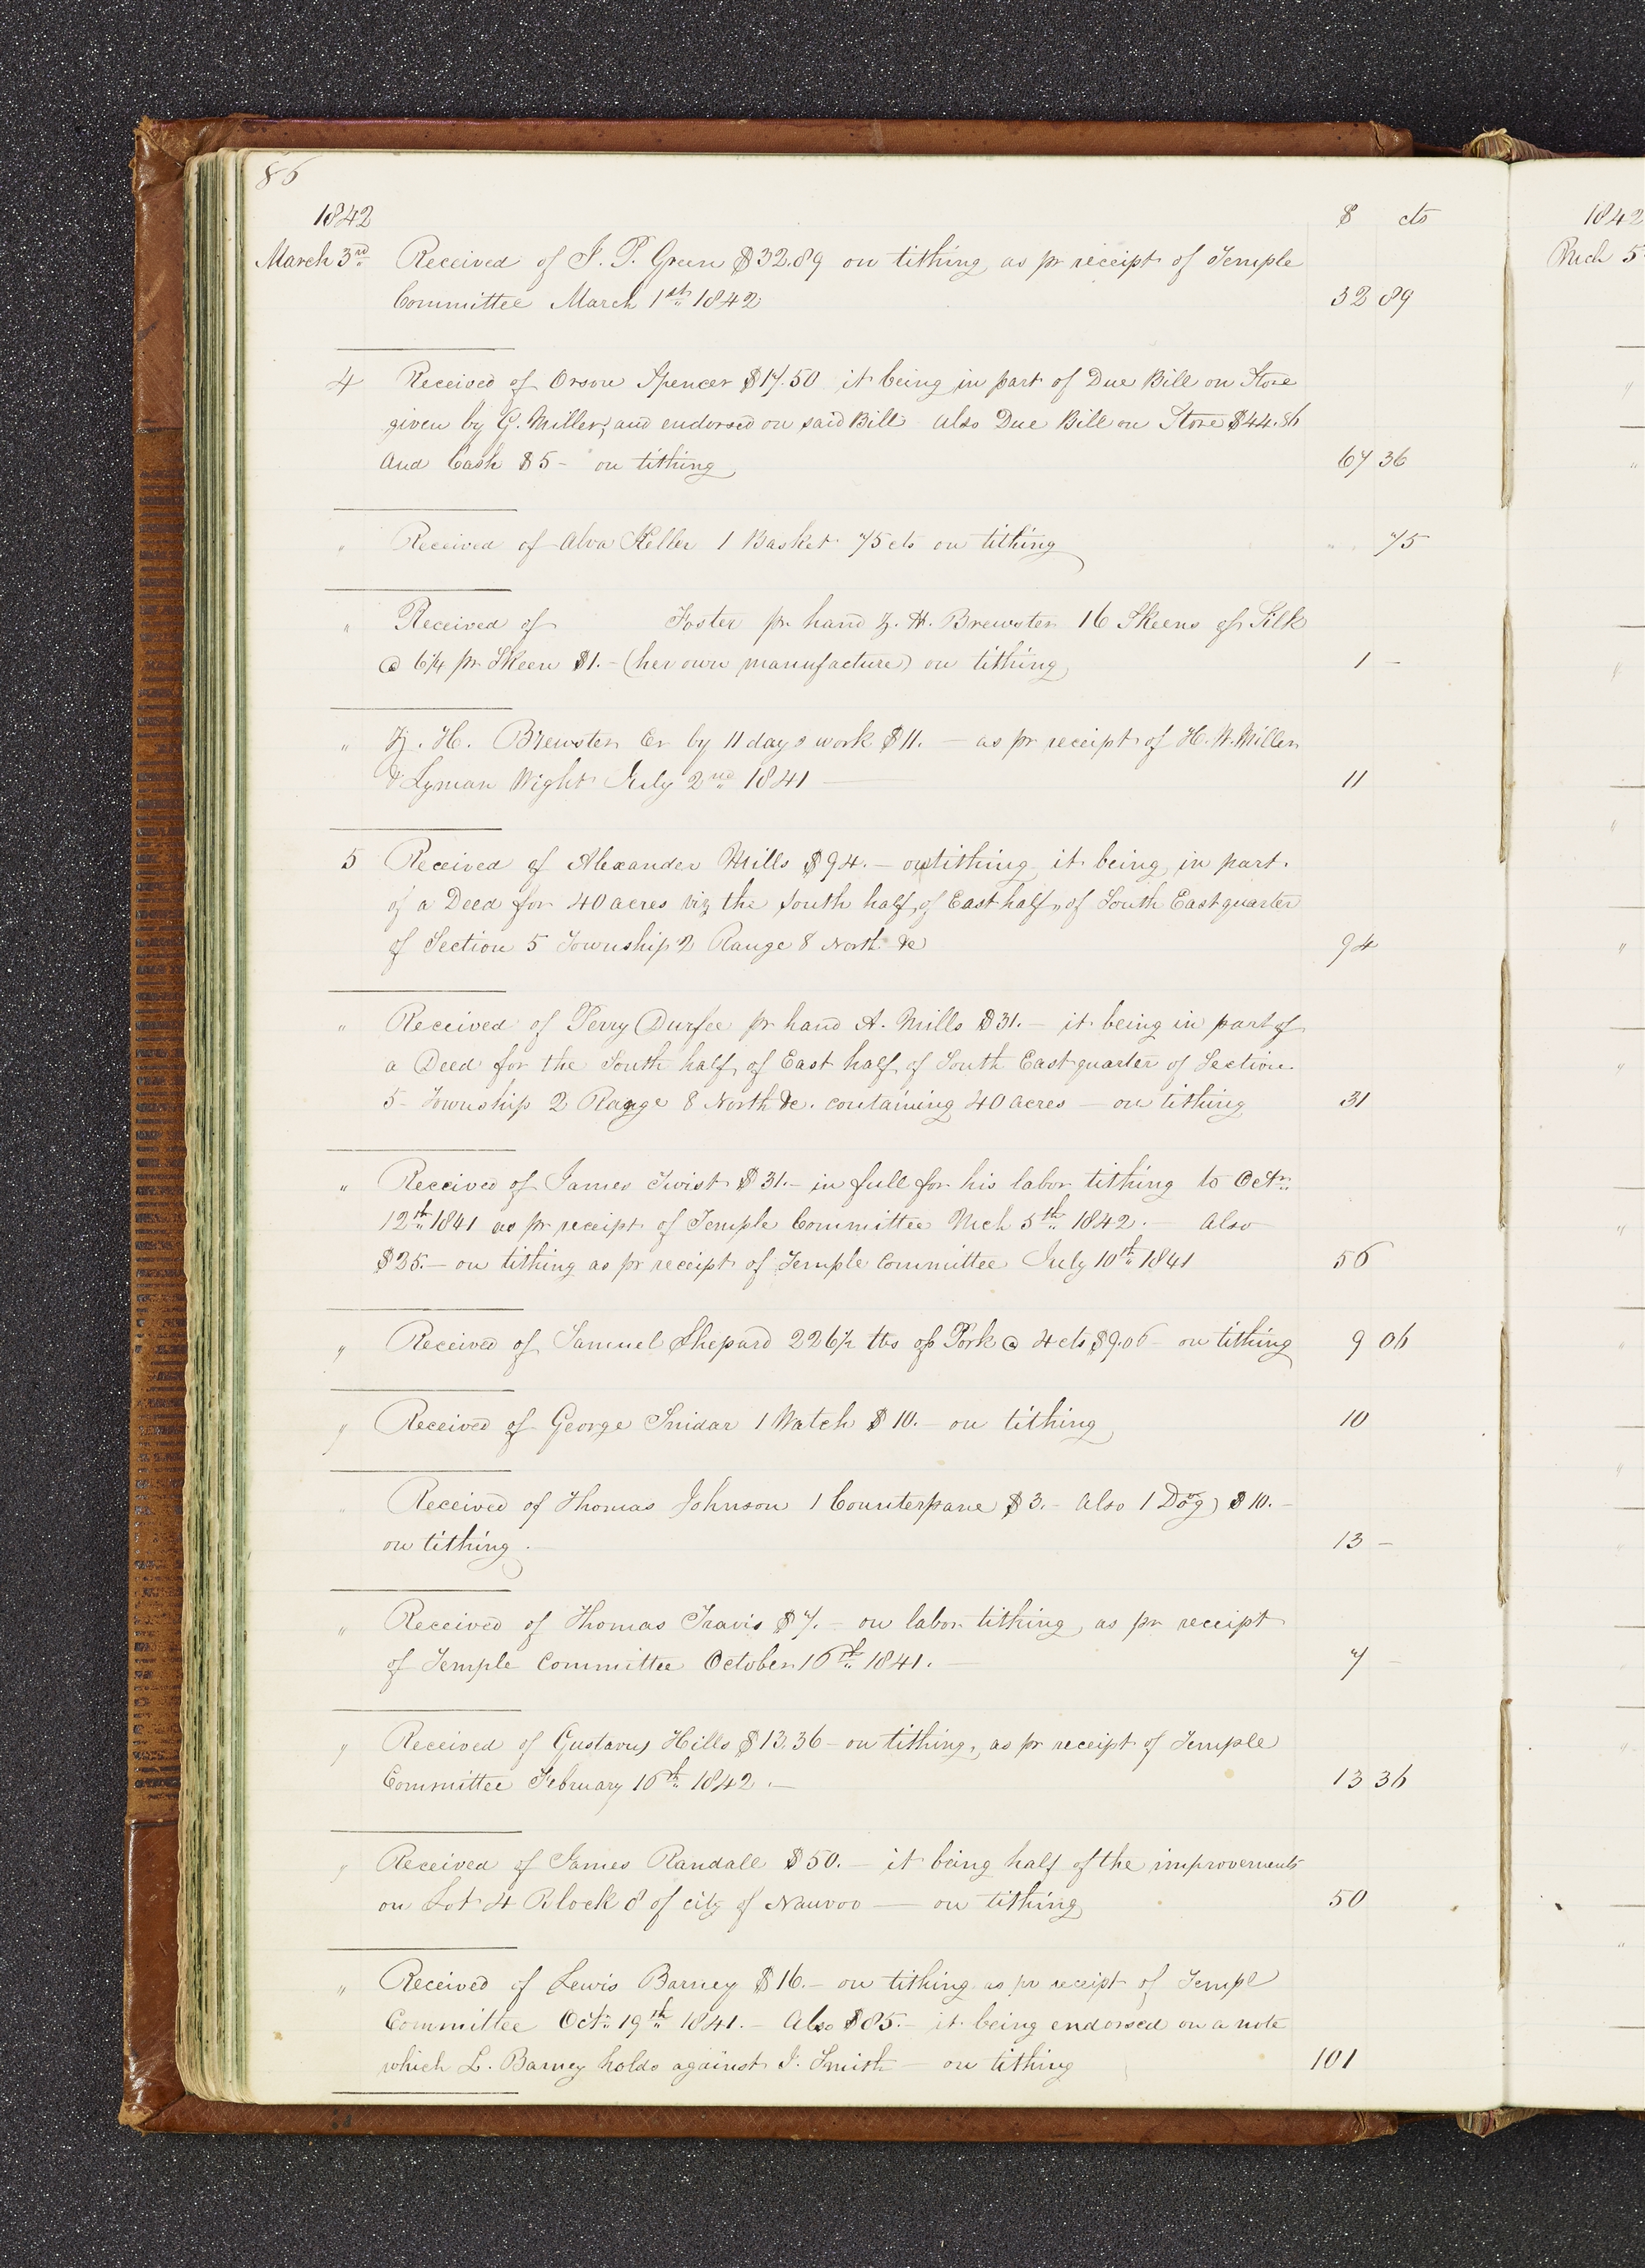 86
1842 $ cts
March 3rd Received of J. P. Green $32.89 on tithing, as pr receipt of Temple
Committee March 1st 1842 32 89
4 Received of Orson Spencer $17.50 it being in part of Due Bill on Store
given by G. Miller, and endorsed on said Bill also Due Bill on Store $44.86
And Cash $5- on tithing 67 36
" Received of Alva Keller 1 Basket 75 cts on tithing " 75
" Received of Foster pr hand Z. H. Brewster 16 Skeens of Silk
@ 6¼ pr Skeen $1.- (her own manufacture) on tithing 1 -
" Z. H. Brewster Cr by 11 days work $11. - as pr receipt of H. W. Miller
& Lyman Wight July 2nd 1841 — 11
5 Received of Alexander Mills $94. - on tithing, it being in part
of a Deed for 40 acres viz the South half, of East half, of South East quarter
of Section 5 Township 2 Range 8 North &c 94
" Received of Perry Durfee pr hand A. Mills $31. - it being in part of
a Deed for the South half, of East half, of South East quarter of Section
5- Township 2 Range 8 North &c. containing 40 acres — on tithing 31
" Received of James Twist $31.- in full for his labor tithing to Octr
12th 1841 as pr receipt of Temple Committee Mch 5th 1842. - Also
$25.- on tithing as pr receipt of Temple Committee July 10th 1841 56
" Received of Samuel Shepard 226½ lbs of Pork @ 4 cts $9.06 - on tithing 9 06
" Received of George Snidar 1 Watch $10. - on tithing 10
" Received of Thomas Johnson 1 Counterpane $3. - Also 1 Dog $10. -
on tithing. 13 -
" Received of Thomas Travis $7. - on labor tithing, as pr receipt
of Temple Committee October 16th 1841. — 7 -
" Received of Gustavus Hills $13.36 - on tithing, as pr receipt of Temple
Committee February 16th 1842. - 13 36
" Received of James Randall $50. - it being half of the improvements
on Lot 4 Block 8 of city of Nauvoo — on tithing 50
" Received of Lewis Barney $16. - on tithing as pr receipt of Temple
Committee Oct. 19th 1841. - Also $85. - it being endorsed on a note
which L. Barney holds against J. Smith — on tithing 101
1842
Mch 5